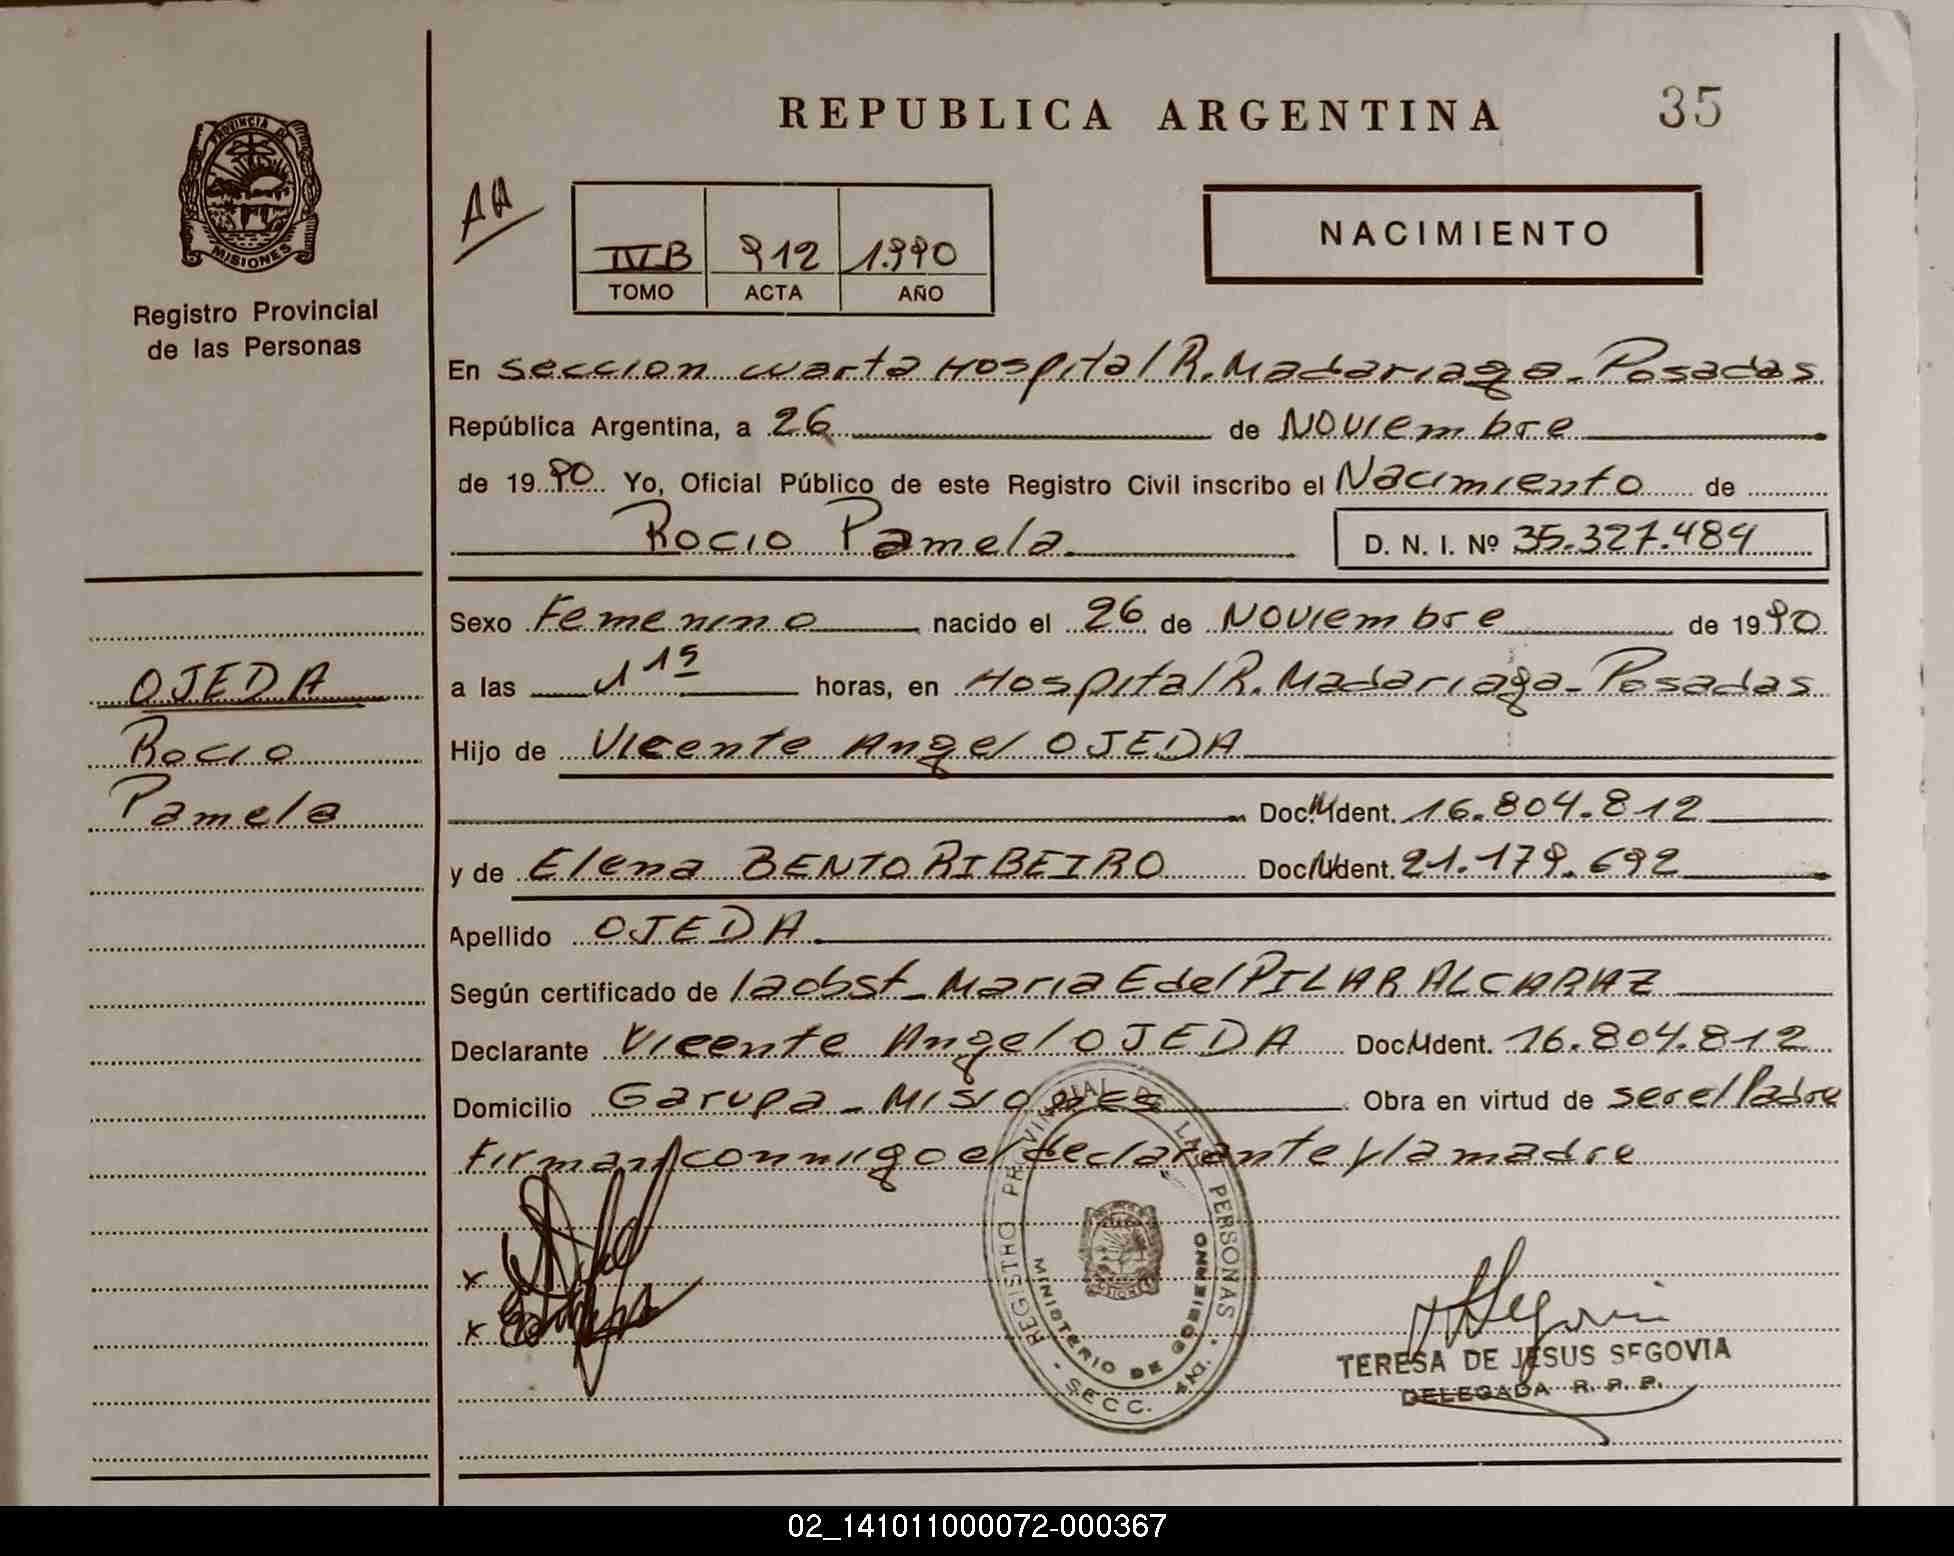 REPUBLICA ARGENTINA
35
PROVINCIA DE
MISIONES
Registro Provincial
de las Personas
AA
IV B 912 1.990
TOMO ACTA AÑO
NACIMIENTO
En seccion cuarta Hospital R. Madariaga - Posadas
República Argentina, a 26 de Noviembre
de 1990 Yo, Oficial Público de este Registro Civil inscribo el Nacimiento de
Rocio Pamela
D. N. I. Nº 35.327.484
OJEDA
Rocio
Pamela
Sexo Femenino nacido el 26 de Noviembre de 1990
a las 1 15 horas, en Hospital R. Madariaga - Posadas
Hijo de Vicente Angel OJEDA
Doc. Ident. 16.804.812
y de Elena BENTO RIBEIRO Doc. Ident. 21.179.692
Apellido OJEDA
Según certificado de la obst - Maria E del PILAR ALCARAZ
Declarante Vicente Angel OJEDA Doc. Ident. 16.804.812
Domicilio Garupa - Misiones Obra en virtud de ser el Padre
Firman conmigo el declarante y la madre
x
x
REGISTRO PROVINCIAL DE LAS PERSONAS
MINISTERIO DE GOBIERNO
MISIONES
SECC. 4ta.
TERESA DE JESUS SEGOVIA
DELEGADA R. P. P.
02_141011000072-000367